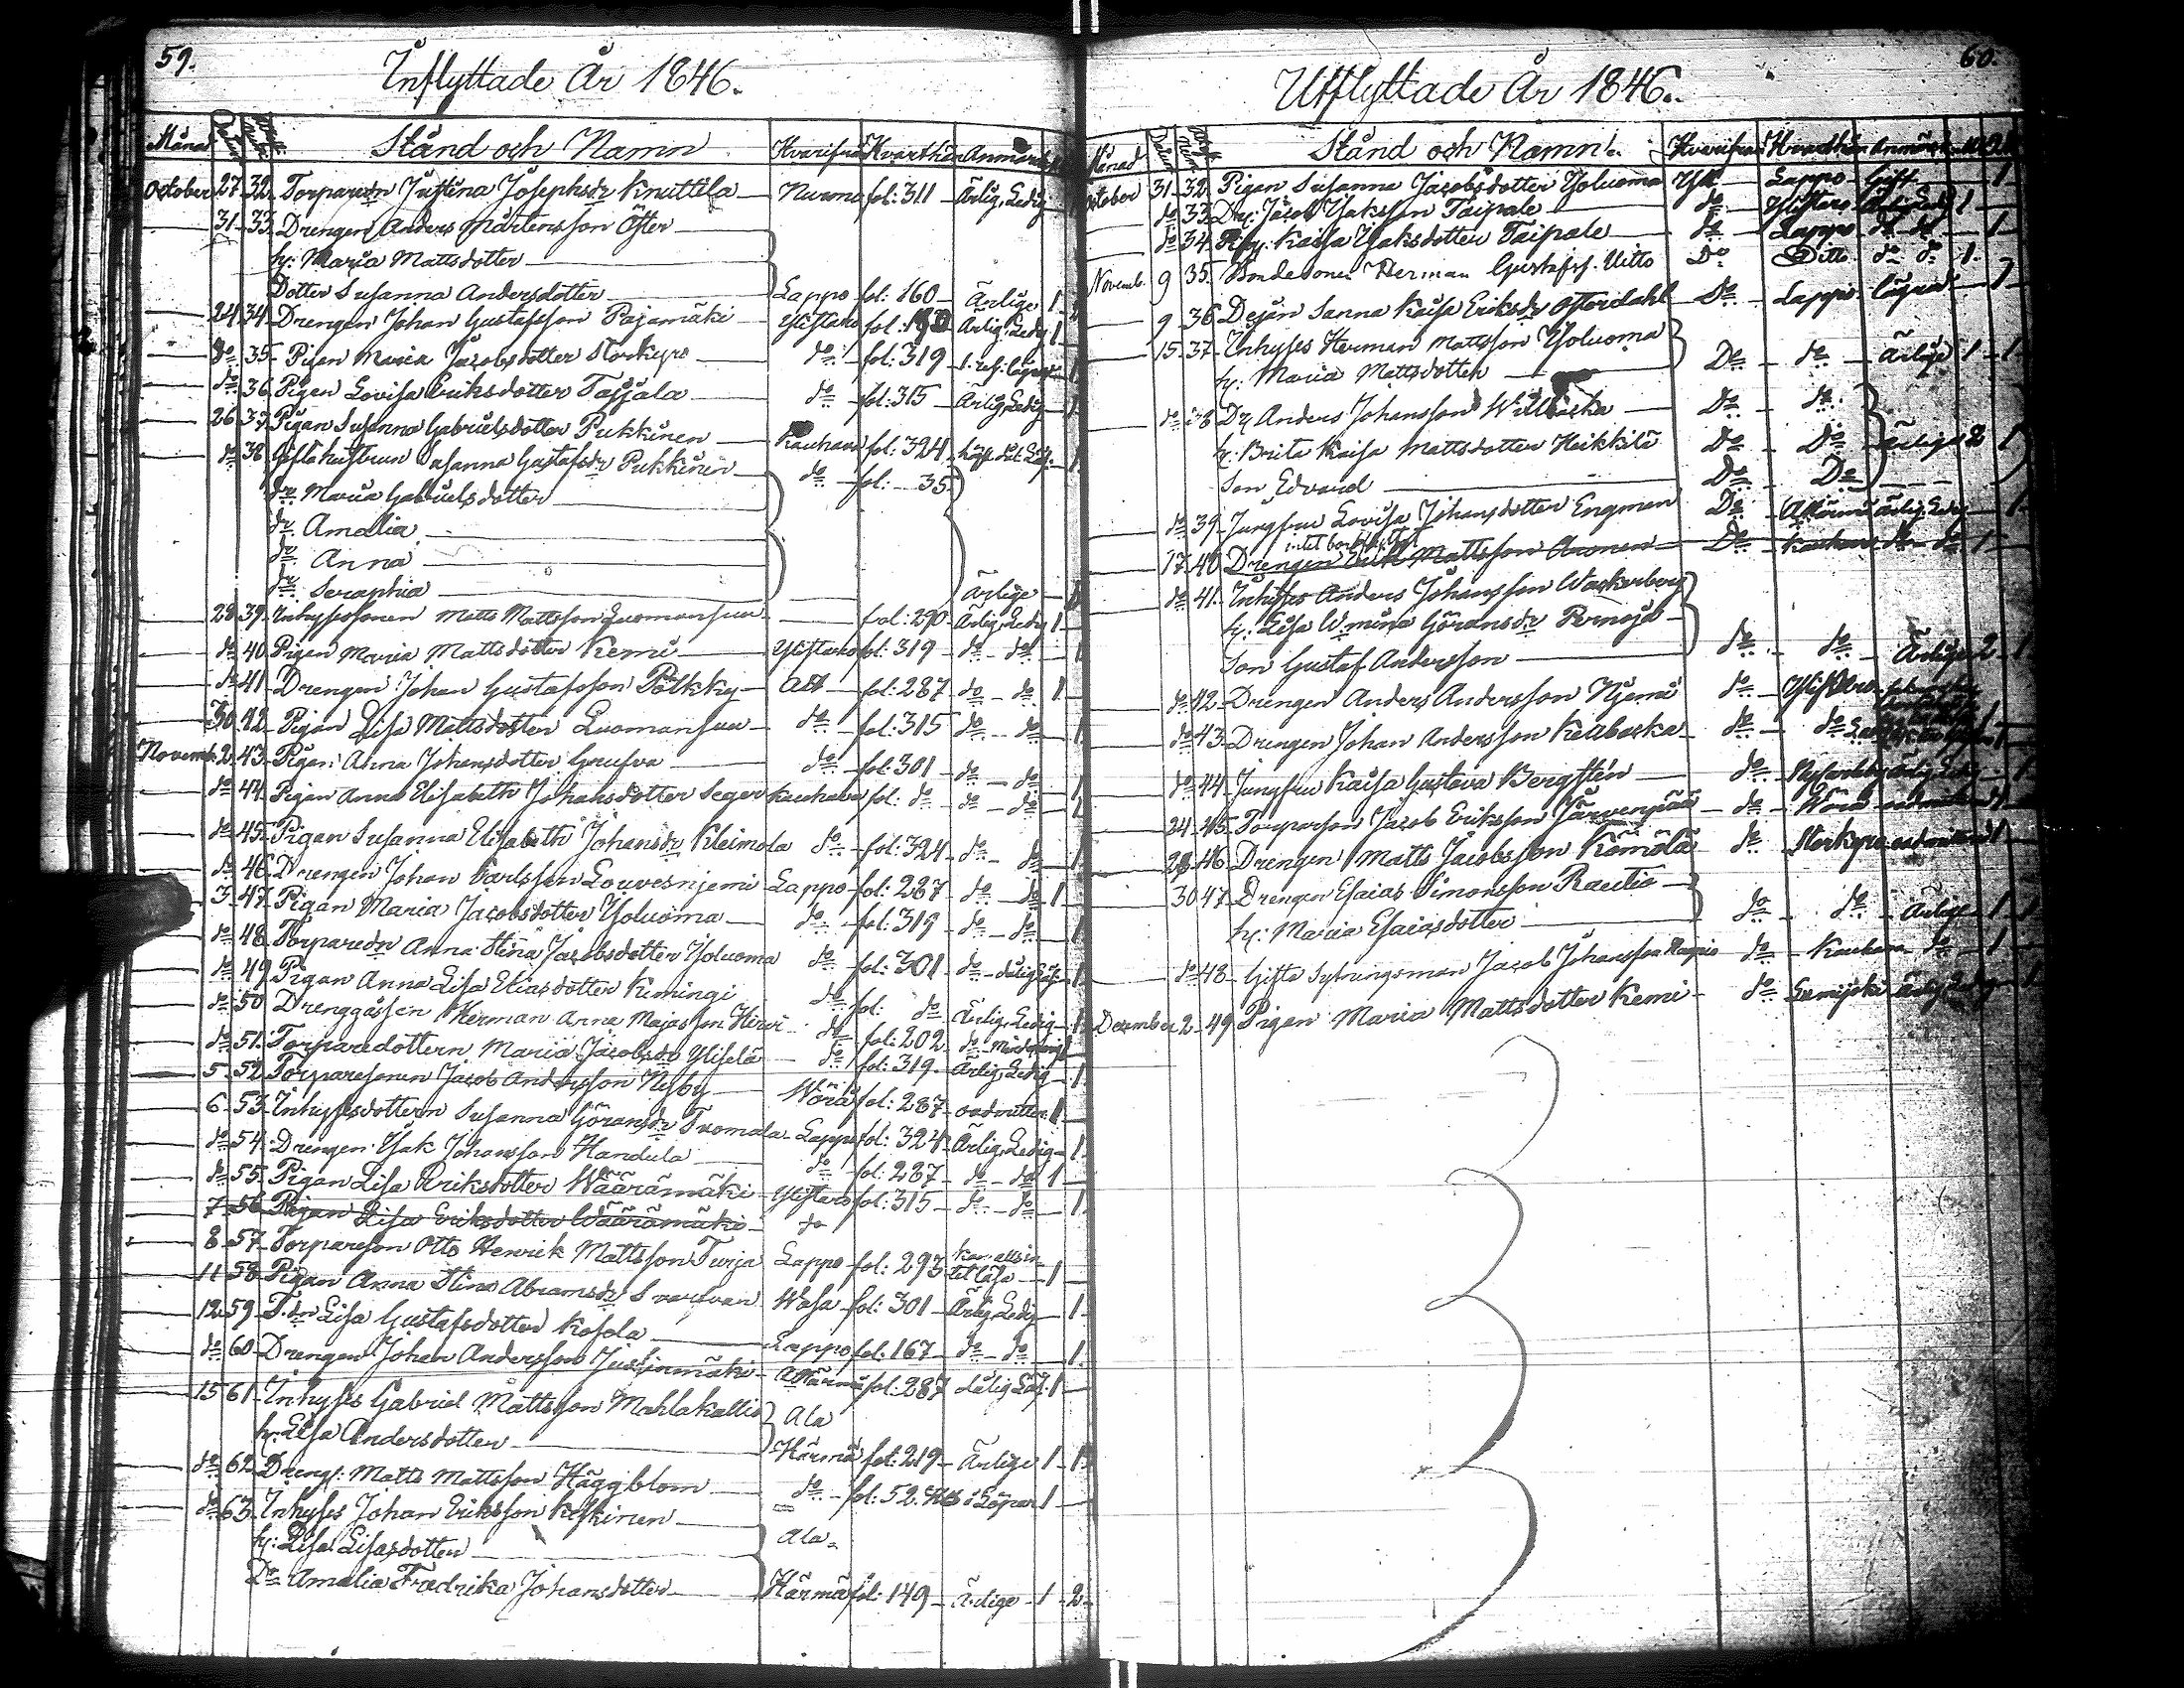 59.
Inflyttade År 1846.
Månad Stånd och Namn Hvarifrån Hvarthän Anmärk
October 27 32. Torparedr Justina Josephsdr Knuttila Nurmo fol: 311 Ärlig, Ledig
31 33 Drengen Anders Mårtensson Öfter
h: Maria Mattsdotter
Dotter Susanna Andersdotter Lappo fol: 160 Ärlige 1
24 34 Drengen Johan Gustafsson Pajamäki Ylistaro fol: Ärlig, Ledig 1
do 35 Pigan Maria Jacobsdotter Storkyro do fol: 319 1
do 36 Pigan Lovisa Eriksdotter Passala do fol: 315 Ärlig, Ledig 1
26 37 Pigan Susanna Gabrielsdotter Pukkinen Kauhava fol: 324 1
do 38 Gifta hustrun Susanna Gustafsdr Pukkinen do fol: 35
dr Maria Gabrielsdotter
dr Amalia
dr Anna
dr Seraphia Ärlige
28 39 Inhysessonen Matts Mattsson Luomansuu fol: 290 Ärlig, Ledig 1
do 40 Pigan Maria Mattsdotter Kemi Ylistaro fol: 319 do do 1
do 41 Drengen Johan Gustafsson Pölkky fol: 287 do do 1
30 42 Pigan Lisa Mattsdotter Luomansuu do fol: 315 do do 1
Novemb. 2 43 Pigan Anna Johansdotter do fol: 301 do do 1
do 44 Pigan Anna Elisabeth Johansdotter Seger Kauhava fol: do do do
do 45 Pigan Susanna Elisabeth Johansdr Kleimola do fol: 324 do do 1
do 46 Drengen Johan Carlsson Louvesnjemi Lappo fol: 287 do do 1
3 47 Pigan Maria Jacobsdotter Yoluoma do fol: 319 do do 1
do 48 Torparedr Anna Stina Jacobsdotter Yoluoma do fol: 301 do 1
do 49 Pigan Anna Lisa Eliasdotter Kimingi do fol: do Ärlig, Ledig 1
do 50 Drenggossen Herman Anna Majasson Hirvi do fol: 202 do
do 51 Torparedottern Maria Jacobsdr Yliselä do fol: 319 Ärlig, Ledig 1
5 52 Torparesonen Jacob Andersson Nyby Wörå fol: 287 oadmitter. 1
6 53 Inhysesdottern Susanna Göransdr Tuomala Lappo fol: 324 Ärlig, Ledig 1
do 54 Drengen Isak Johansson Handula do fol: 287 do do 1
do 55 Pigan Lisa Eriksdotter Wäärämäki Ylistaro fol: 315 do do 1
7 56 Pigan Lisa Eriksdotter Wäärämäki do
8 57 Torpareson Otto Henrik Mattsson Turja Lappo fol: 293 kan allsin
tet läsa 1
11 58 Pigan Anna Stina Abramsdr Wasa fol: 301 Ärlig, Ledig 1
12 59 T.dr Lisa Gustafsdotter Kosola Lappo fol: 167 do do 1
do 60 Drengen Johan Andersson Jussinmäki A Härmä fol: 287 1
15 61 Inhyses Gabriel Mattsson Mahlakallio Ala
h: Lisa Andersdotter Härmä fol: 219 Ärlige 1 1
do 62 Drengs: Matts Mattsson Häggblom do fol: 52 1
do 63 Inhyses Johan Eriksson Keskinen Ala
h: Lisa Lisasdotter
Dr Amalia Fredrika Johansdotter Härmä fol: 149 Ärlige 1 2
60.
Utflyttade År 1846.
Månad Stånd och Namn. Hvarifrån Hvarthän Anmärk
October 31. 32. Pigan Susanna Jacobsdotter Yoluoma Lappo Gift 1
do 33 Dr: Jacob Isaksson Taipale do Ylistaro 1
do 34 Pig: Kaisa Isaksdotter Taipale do Lappo do do 1
Novemb. 9 35 Bondesonen Herman Gustafss. Uitto Do Ditto do do 1
9 36 Dejan Sanna Kaisa Eriksdr Österdahl Do Lappo 1
15 37 Inhyses Herman Mattsson Yoluoma
h: Maria Mattsdotter Do do Ärlige 1 1
do 38 Dr Anders Johansson Do do
h: Brita Kaisa Mattsdotter Heikkilä Do Do Ärlige 2 1
Son Edvard Do Do
do 39 Jungfru Lovisa Johansdotter Engman Do 1
17 40 Drengen Erik Mattsson Aronen Do Kauhava do do 1
do 41 Inhyses Anders Johansson Wackerberg
h: Lisa Wmina Göransdr Pernaja
Son Gustaf Andersson do do Ärlige 2 1
do 42 Drengen Anders Andersson Njemi do Ylistaro
do 43 Drengen Johan Andersson do do
do 44 Jungfru Kaisa Gustava Bergsten do Nykarleby Ärlig Ledig 1
24 45 Torparson Jacob Eriksson Järvenpää do Wörå oadmitterad 1
28 46 Drengen Matts Jacobsson Kömölä do Storkyro oadmitterad 1
30 47 Drengen Esaias Simonsson Rautio
h: Maria Esaiasdotter do do Ärlige 1 1
do 48 Gifte Sytningsman Jacob Johansson do Kauhava do 1
December 2 49 Pigan Maria Mattsdotter Kemi do Ärlig Ledig 1